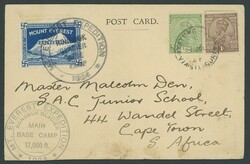 POST CARD.
MOUNT EVEREST
EXPEDITION
1924
Master Malcolm Den,
S.A.C. Junior School,
44 Wandel Street,
Cape Town
S. Africa
MT. EVEREST EXPEDITION
MAIN
BASE CAMP
17,000 ft.
1924